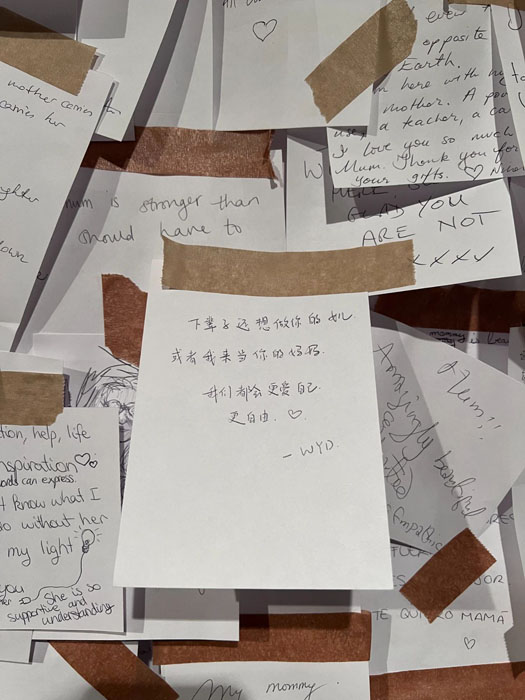 mother carries
carries her
ghter
down
even
opposite
Earth.
here with my
mother. A
a teacher, a
I love you so much
Mum. Thank you for
your gifts. ♡
GLAD YOU
ARE NOT
mum is stronger than
should have to
下辈子还想做你的女儿
或者我来当你的妈妈.
我们都会更爱自己
更自由. ♡.
- WYD.
tion, help, life
nspiration
words can express.
t know what I
o without her
my light
you
She is so
supportive and
understanding
Mum!!
beautiful
MAMÁ
My mommy.